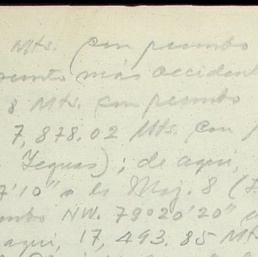 Mts. con rumbo
más occident
8 Mts. con rumbo
7,878.02 Mts. con
Yeguas); de aquí,
7'10" a la Moj. 8 (
mbo NW. 79°20'20"
aquí, 17,493.85 Mt